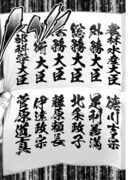 農林水産大臣 徳川吉宗
外務大臣 足利義満
総務大臣 北条政子
財務大臣 藤原頼長
防衛大臣 伊達政宗
文部科学大臣 菅原道真